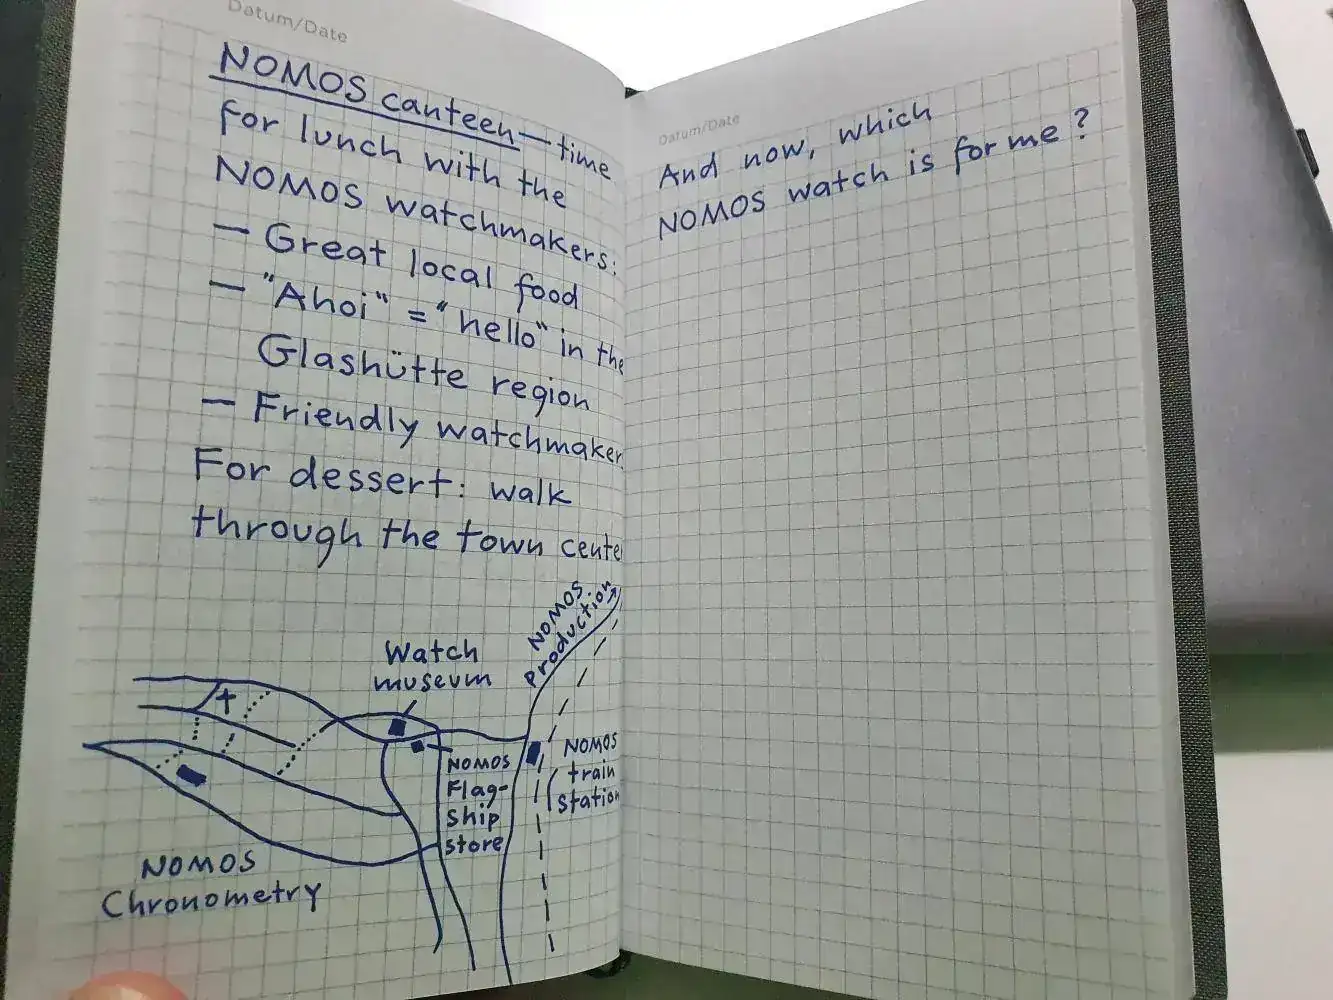 Datum/Date
NOMOS canteen — time
for lunch with the
NOMOS watchmakers:
— Great local food
— "Ahoi" = "hello" in the
Glashütte region
— Friendly watchmaker
For dessert: walk
through the town cente
NOMOS
Production
Watch
museum
NOMOS
Flag-
ship
store
NOMOS
train
station
NOMOS
Chronometry
Datum/Date
And now, which
NOMOS watch is for me?